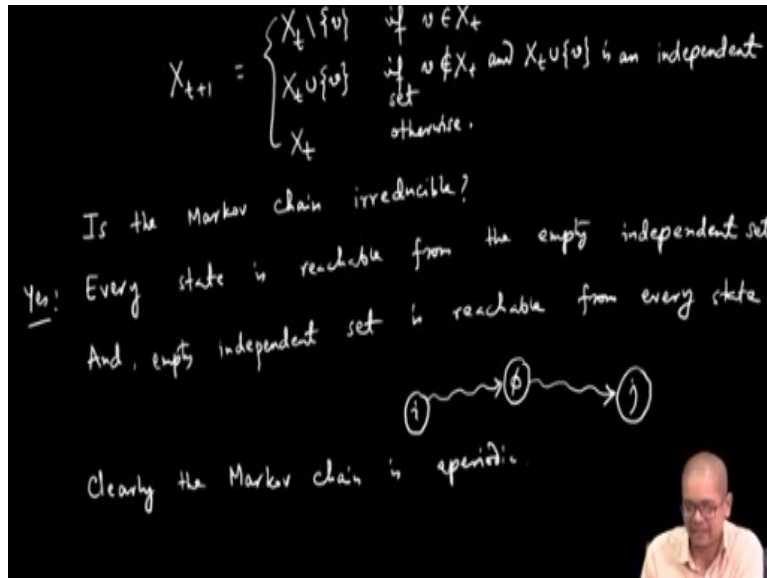 X_t \ {v} if v ∈ X_t
X_{t+1} = { X_t ∪ {v} if v ∉ X_t and X_t ∪ {v} is an independent
set
X_t otherwise.
Is the Markov chain irreducible?
Yes! Every state is reachable from the empty independent set
And, empty independent set is reachable from every state
i → φ → j
Clearly the Markov chain is aperiodic.